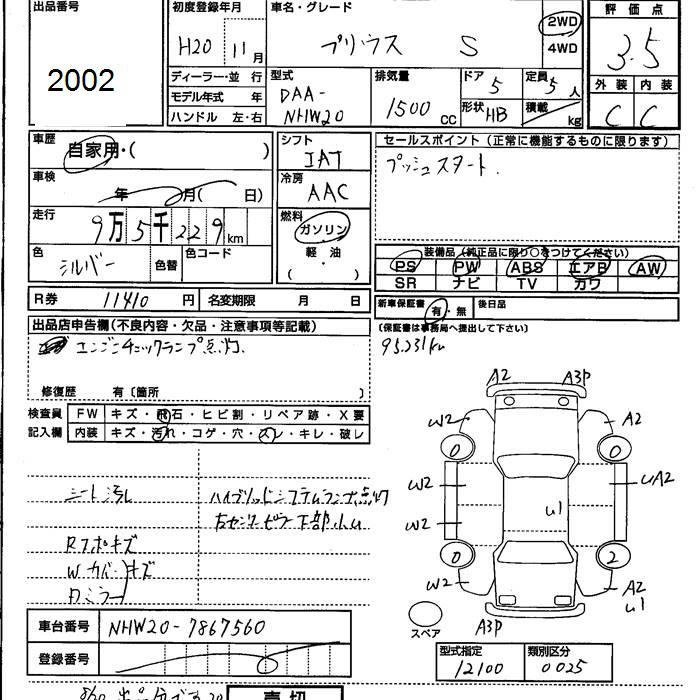 出品番号
2002
初度登録年月
H20 11月
ディーラー・並 行
モデル年式 年
ハンドル 左・右
車名・グレード
プリウス S
2WD
4WD
型式
DAA-
NHW20
排気量
1500 cc
ドア 5
形状 HB
定員 5人
積載 kg
評価点
3.5
外装 内装
C C
車歴
自家用・( )
車検
年 月( 日)
走行
9万5千229km
色
シルバー
色替
色コード
シフト
IAT
冷房
AAC
燃料
ガソリン
軽 油
( ・ )
セールスポイント(正常に機能するものに限ります)
プッシュスタート.
装備品(純正品に限り○をつけてください)
PS PW ABS エアB AW
SR ナビ TV カワ
R券 11410 円 名変期限 月 日
新車保証書 有・無 後日品
(保証書は事務局へ提出して下さい)
95.231km
出品店申告欄(不良内容・欠品・注意事項等記載)
エンジンチェックランプ点灯.
修復歴 有〔箇所 〕
検査員
記入欄
FW キズ・飛石・ヒビ割・リペア跡・X要
内装 キズ・汚れ・コゲ・穴・スレ・キレ・破レ
シート汚れ
ハイブリッドシステムランプ点灯
右センターピラー下部小U
Rフポキズ
Wカバーキズ
Rミラー
A2 A3P
W2 A2
0 0
W2 UA2
W2 U1
0 2
W2 A2
U1
A3P
スペア
車台番号 NHW20-7867560
登録番号
型式指定 類別区分
12100 0025
売切